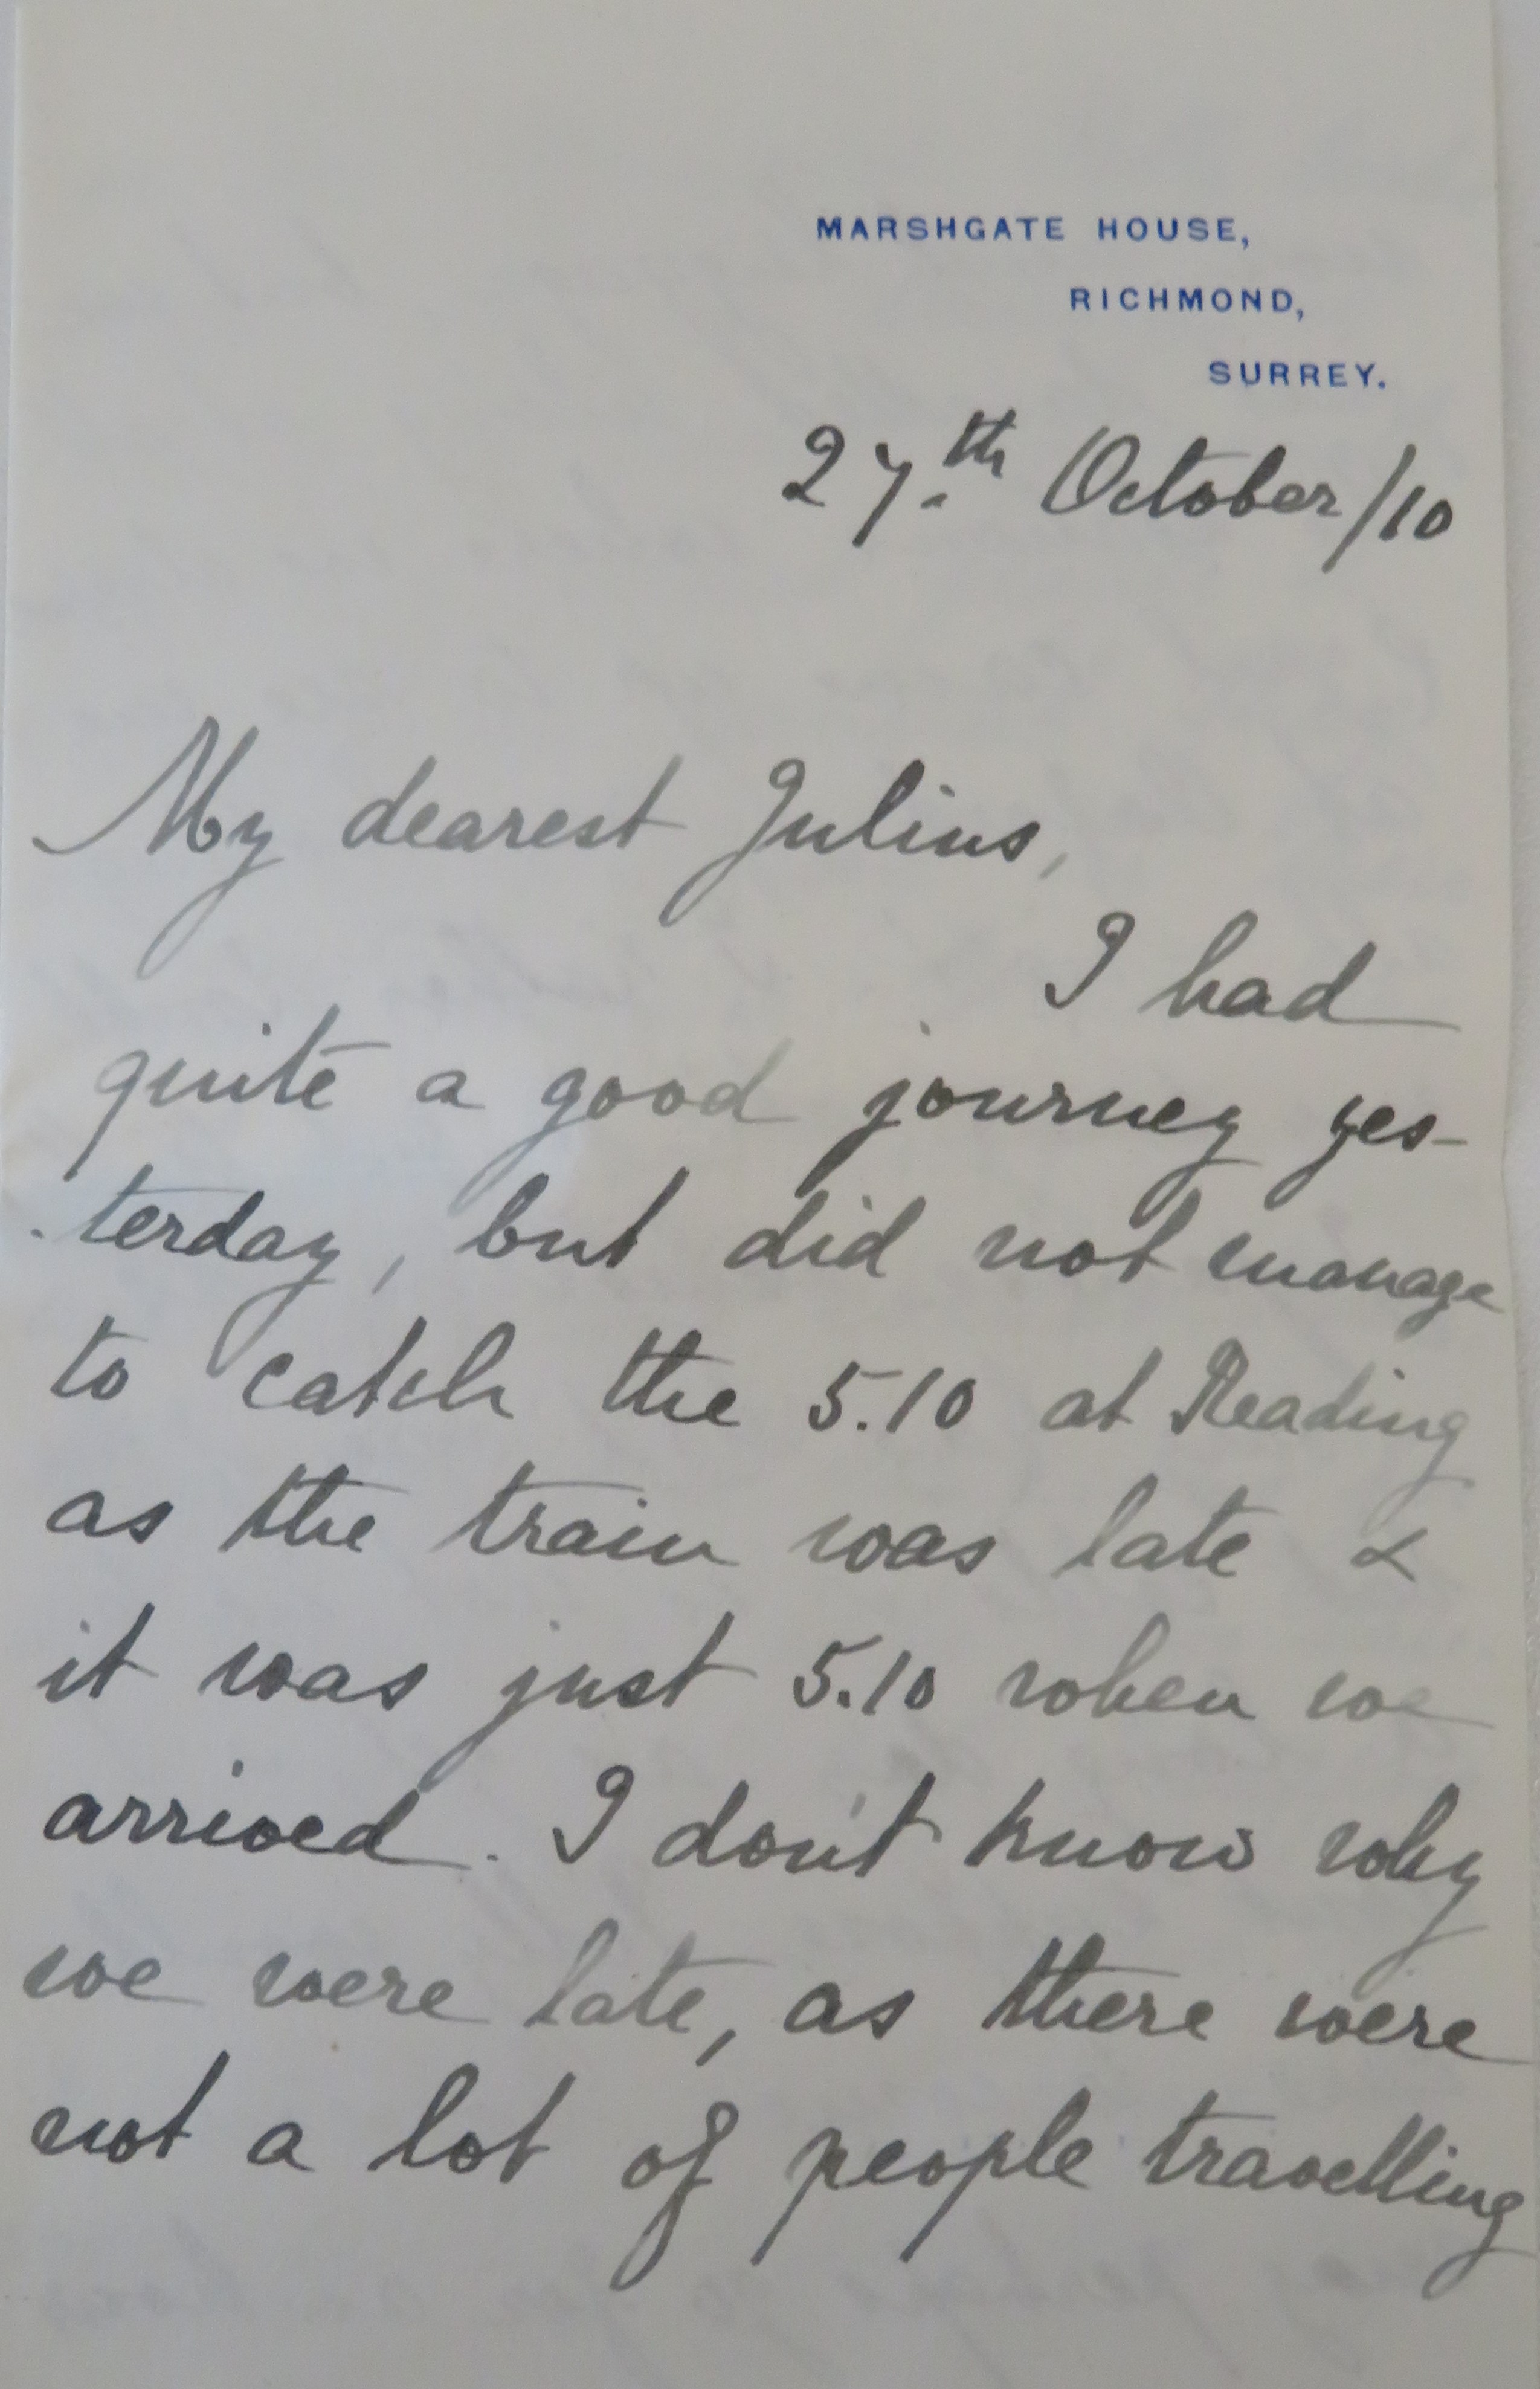 MARSHGATE HOUSE,
RICHMOND,
SURREY.
27th October/10
My dearest Julius,
I had
quite a good journey yes-
terday, but did not manage
to catch the 5.10 at Reading
as the train was late &
it was just 5.10 when we
arrived. I don't know why
we were late, as there were
not a lot of people travelling